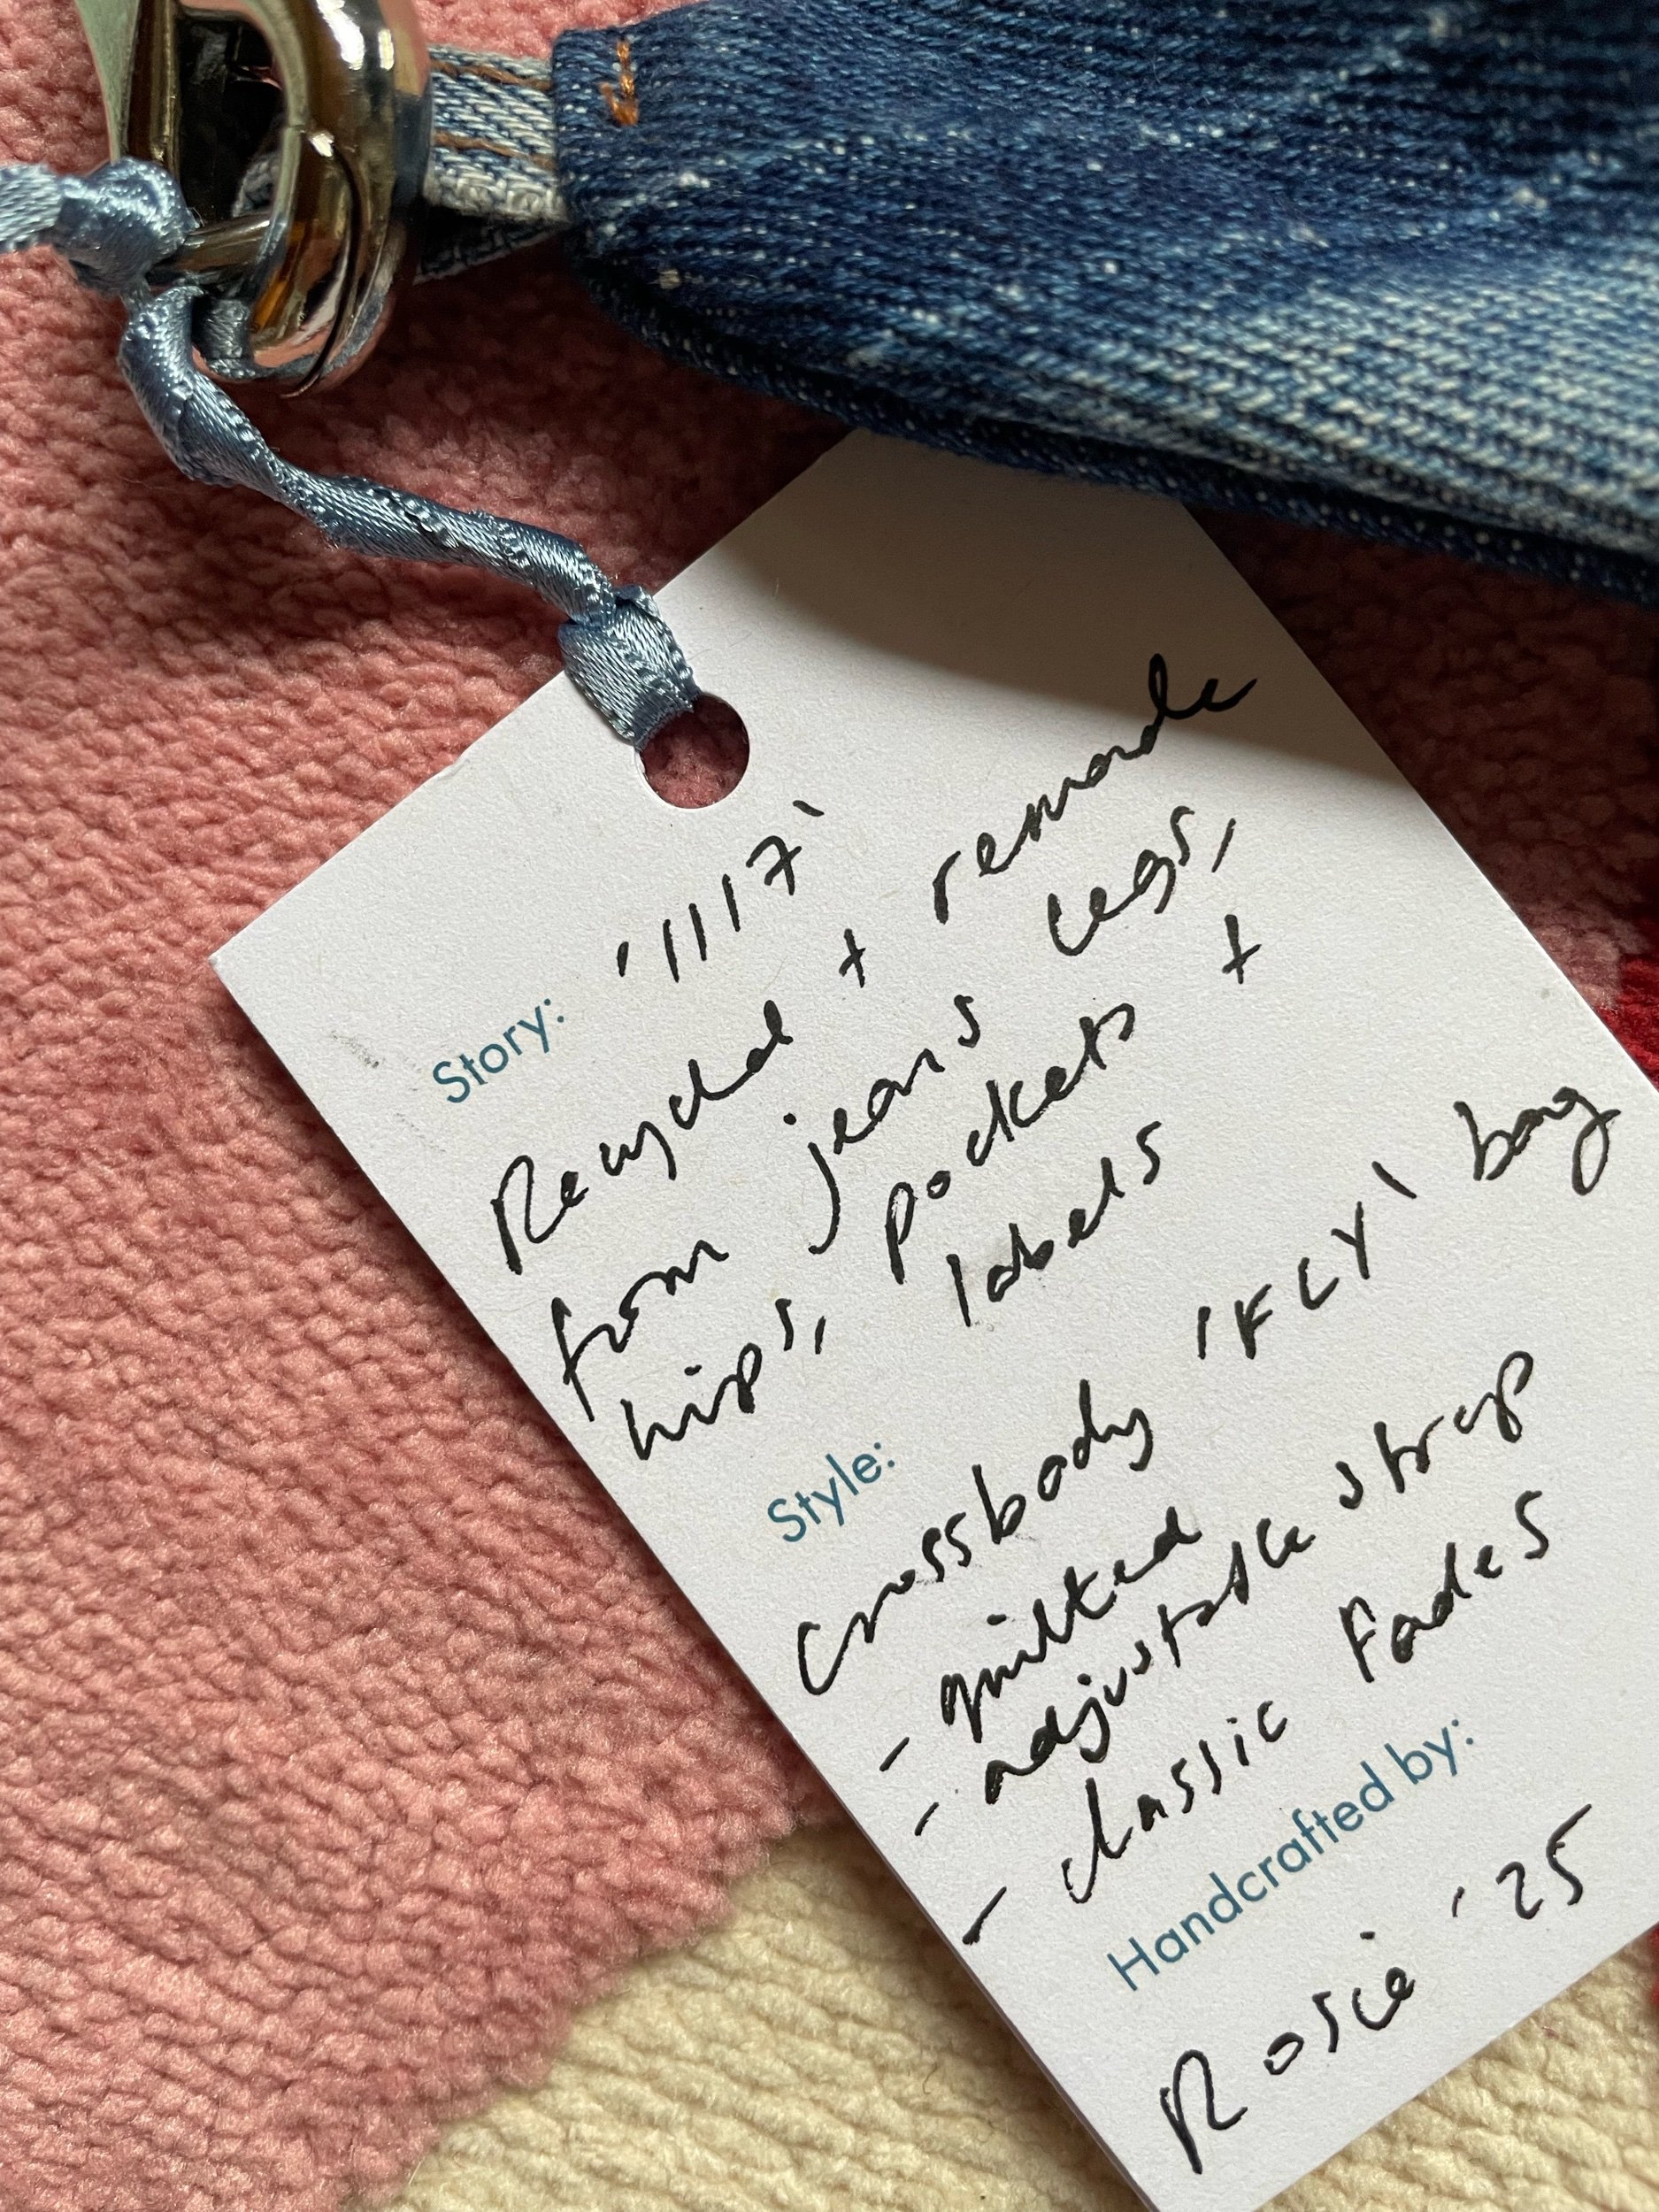 Story: '1117'
Recycled + remade
from jeans legs,
hips, pockets +
labels
Style:
Crossbody 'FLY' bag
- quilted
- adjustable strap
- classic fades
Handcrafted by:
Rosie '25